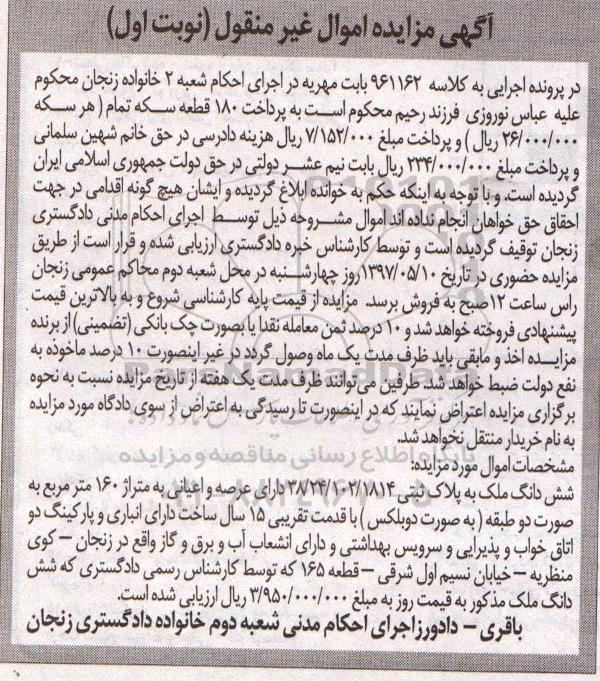 آگهی مزایده اموال غیر منقول (نوبت اول)
در پرونده اجرایی به کلاسه ۹۶۱۱۶۲ بابت مهریه در اجرای احکام شعبه ۲ خانواده زنجان محکوم
علیه عباس نوروزی فرزند رحیم محکوم است به پرداخت ۱۸۰ قطعه سکه تمام ( هر سکه
۲۶/۰۰۰/۰۰۰ ریال ) و پرداخت مبلغ ۷/۱۵۲/۰۰۰ ریال هزینه دادرسی در حق خانم شهین سلمانی
و پرداخت مبلغ ۲۳۴/۰۰۰/۰۰۰ ریال بابت نیم عشر دولتی در حق دولت جمهوری اسلامی ایران
گردیده است. و با توجه به اینکه حکم به خوانده ابلاغ گردیده و ایشان هیچ گونه اقدامی در جهت
احقاق حق خواهان انجام نداده اند اموال مشروحه ذیل توسط اجرای احکام مدنی دادگستری
زنجان توقیف گردیده است و توسط کارشناس خبره دادگستری ارزیابی شده و قرار است از طریق
مزایده حضوری در تاریخ ۱۳۹۷/۰۵/۱۰ روز چهارشنبه در محل شعبه دوم محاکم عمومی زنجان
راس ساعت ۱۲ صبح به فروش برسد. مزایده از قیمت پایه کارشناسی شروع و به بالاترین قیمت
پیشنهادی فروخته خواهد شد و ۱۰ درصد ثمن معامله نقدا یا بصورت چک بانکی (تضمینی) از برنده
مزایده اخذ و مابقی باید ظرف مدت یک ماه وصول گردد در غیر اینصورت ۱۰ درصد ماخوذه به
نفع دولت ضبط خواهد شد. طرفین می‌توانند ظرف مدت یک هفته از تاریخ مزایده نسبت به نحوه
برگزاری مزایده اعتراض نمایند که در اینصورت تا رسیدگی به اعتراض از سوی دادگاه مورد مزایده
به نام خریدار منتقل نخواهد شد.
پایگاه اطلاع رسانی مناقصه و مزایده
مشخصات اموال مورد مزایده:
شش دانگ ملک به پلاک ثبتی ۳۸/۲۴/۱۰۲/۱۸۱۴ دارای عرصه و اعیانی به متراژ ۱۶۰ متر مربع به
صورت دو طبقه ( به صورت دوبلکس ) با قدمت تقریبی ۱۵ سال ساخت دارای انباری و پارکینگ دو
اتاق خواب و پذیرایی و سرویس بهداشتی و دارای انشعاب آب و برق و گاز واقع در زنجان – کوی
منظریه – خیابان نسیم اول شرقی – قطعه ۱۶۵ که توسط کارشناس رسمی دادگستری که شش
دانگ ملک مذکور به قیمت روز به مبلغ ۳/۹۵۰/۰۰۰/۰۰۰ ریال ارزیابی شده است.
باقری – دادورز اجرای احکام مدنی شعبه دوم خانواده دادگستری زنجان